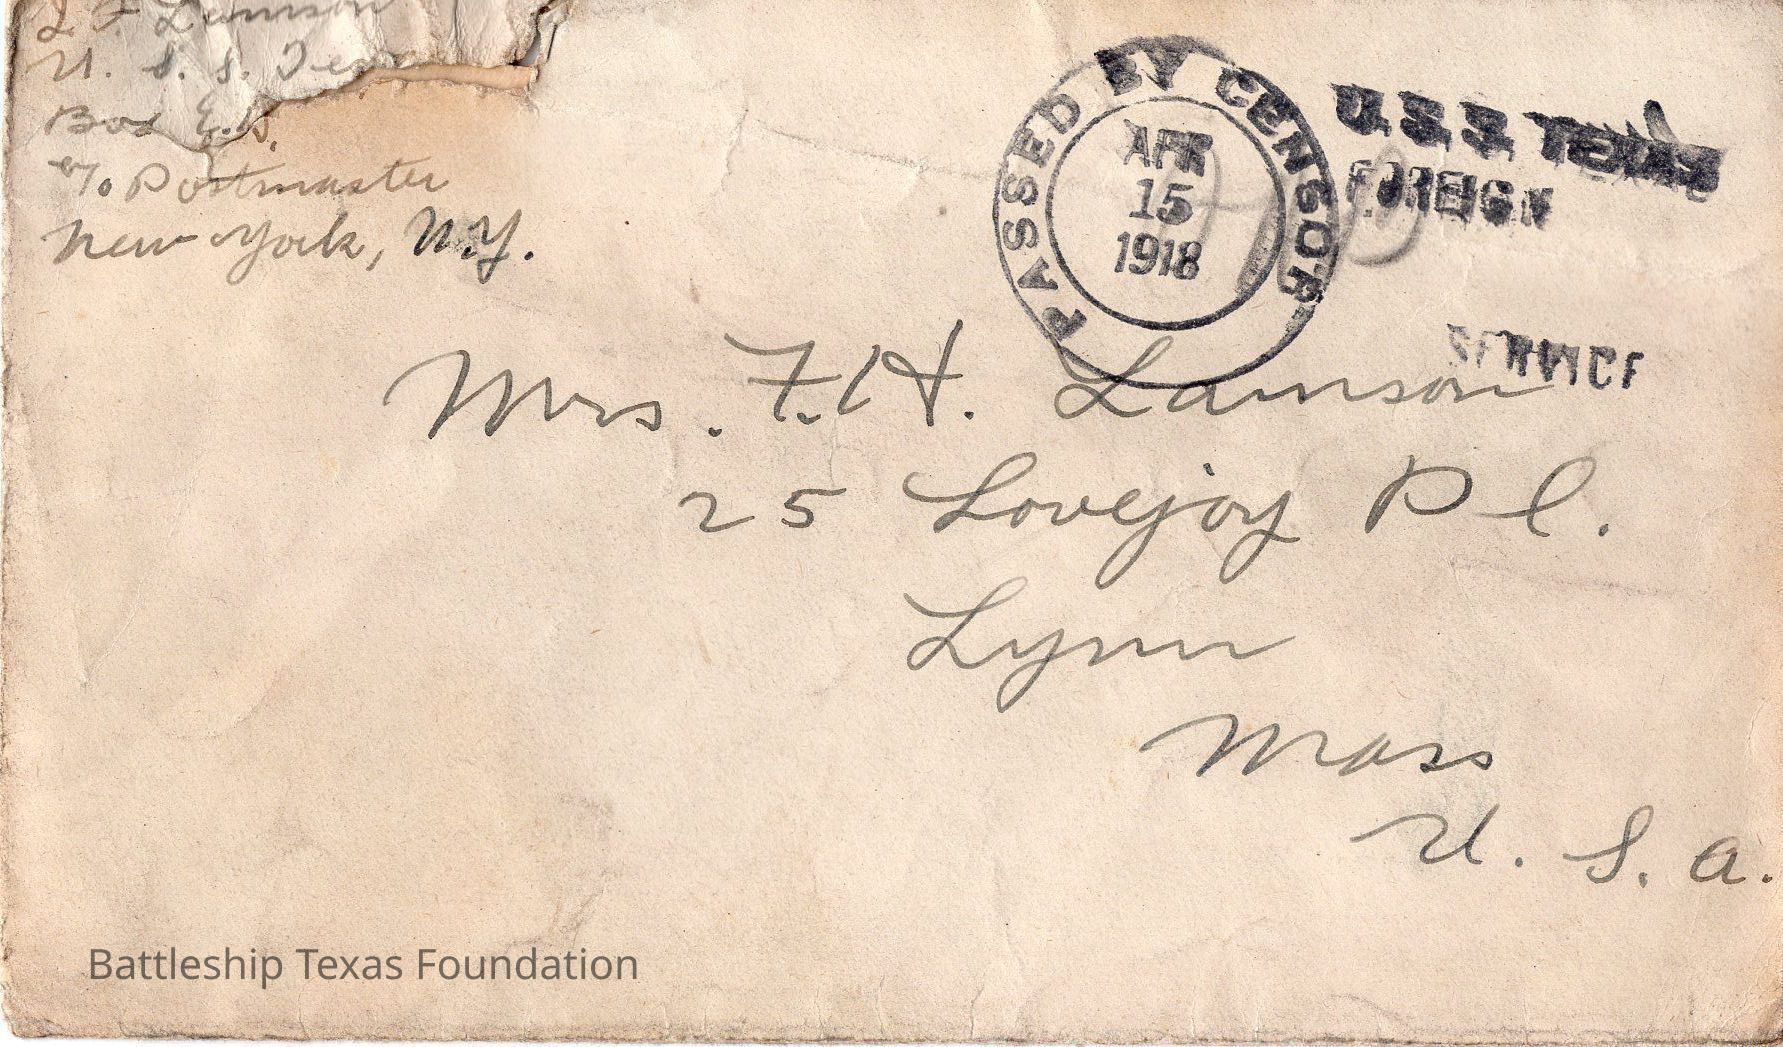 Lamson
U. S. S.
Box
c/o Postmaster
New York, N.Y.
PASSED BY CENSOR
APR
15
1918
U.S.S. TEXAS
FOREIGN
SERVICE
Mrs. F.H. Lamson
25 Lovejoy Pl.
Lynn
Mass
U. S. A.
Battleship Texas Foundation